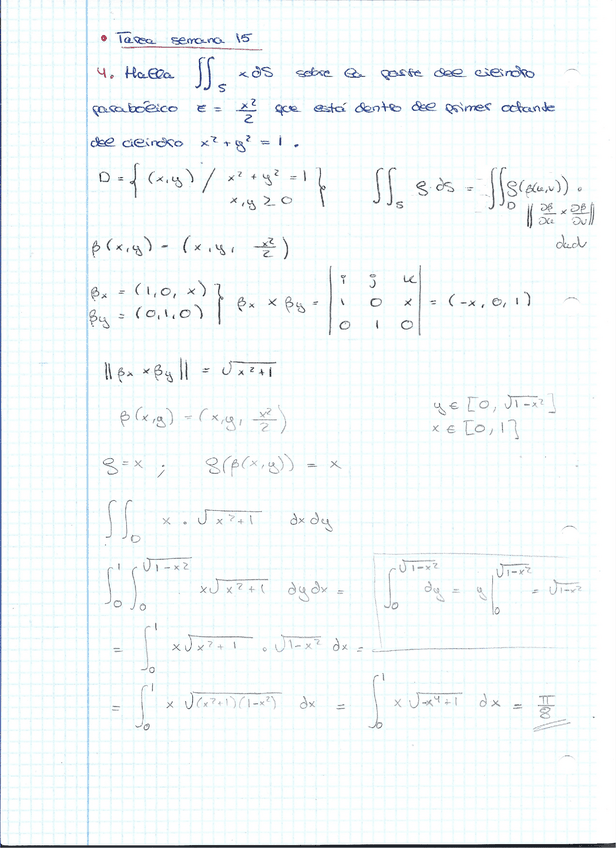 • Tarea semana 15
4. Halla ∬_S x dS sobre la parte del cilindro
parabólico z = x²/2 que está dentro del primer octante
del cilindro x² + y² = 1.
D = { (x,y) / x² + y² = 1
x, y ≥ 0 }
∬_S f·ds = ∬_D f(β(u,v)) ·
‖ ∂β/∂u × ∂β/∂v ‖
dudv
β(x,y) = (x, y, x²/2)
βx = (1, 0, x)
βy = (0, 1, 0) } βx × βy = | i j k |
| 1 0 x | = (-x, 0, 1)
| 0 1 0 |
‖βx × βy‖ = √(x²+1)
β(x,y) = (x, y, x²/2)
y ∈ [0, √(1-x²)]
x ∈ [0, 1]
f = x ; f(β(x,y)) = x
∬_D x · √(x²+1) dx dy
∫₀¹ ∫₀^√(1-x²) x√(x²+1) dy dx =
∫₀^√(1-x²) dy = y |₀^√(1-x²) = √(1-x²)
= ∫₀¹ x√(x²+1) · √(1-x²) dx =
= ∫₀¹ x √((x²+1)(1-x²)) dx = ∫₀¹ x √(-x⁴+1) dx = π/8